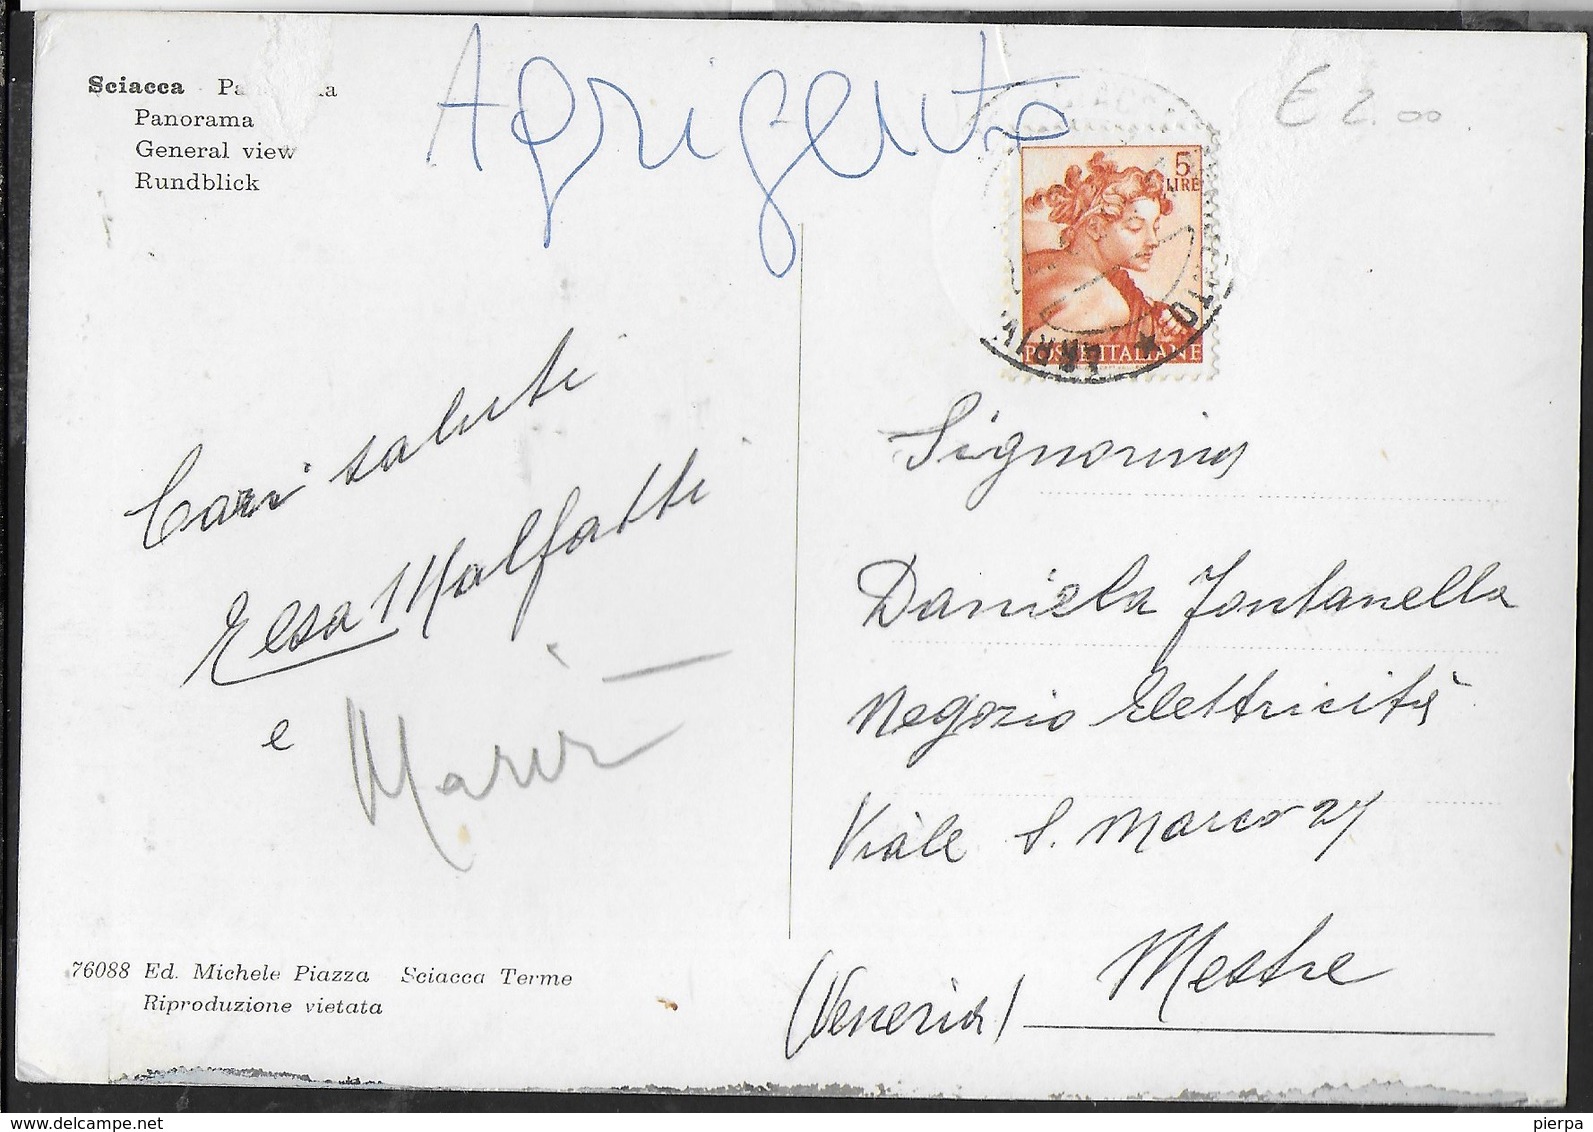 Agrigento
€ 2.00
Sciacca
Panorama
General view
Rundblick
5
LIRE
POSTE ITALIANE
ARRIVI
Cari saluti
Elsa Malfatti
e
Signorina
Daniela Fontanella
Negozio Elettricità
Viale S. Marco 27
Mestre
(Venezia)
76088 Ed. Michele Piazza Sciacca Terme
Riproduzione vietata
delcampe.net
pierpa